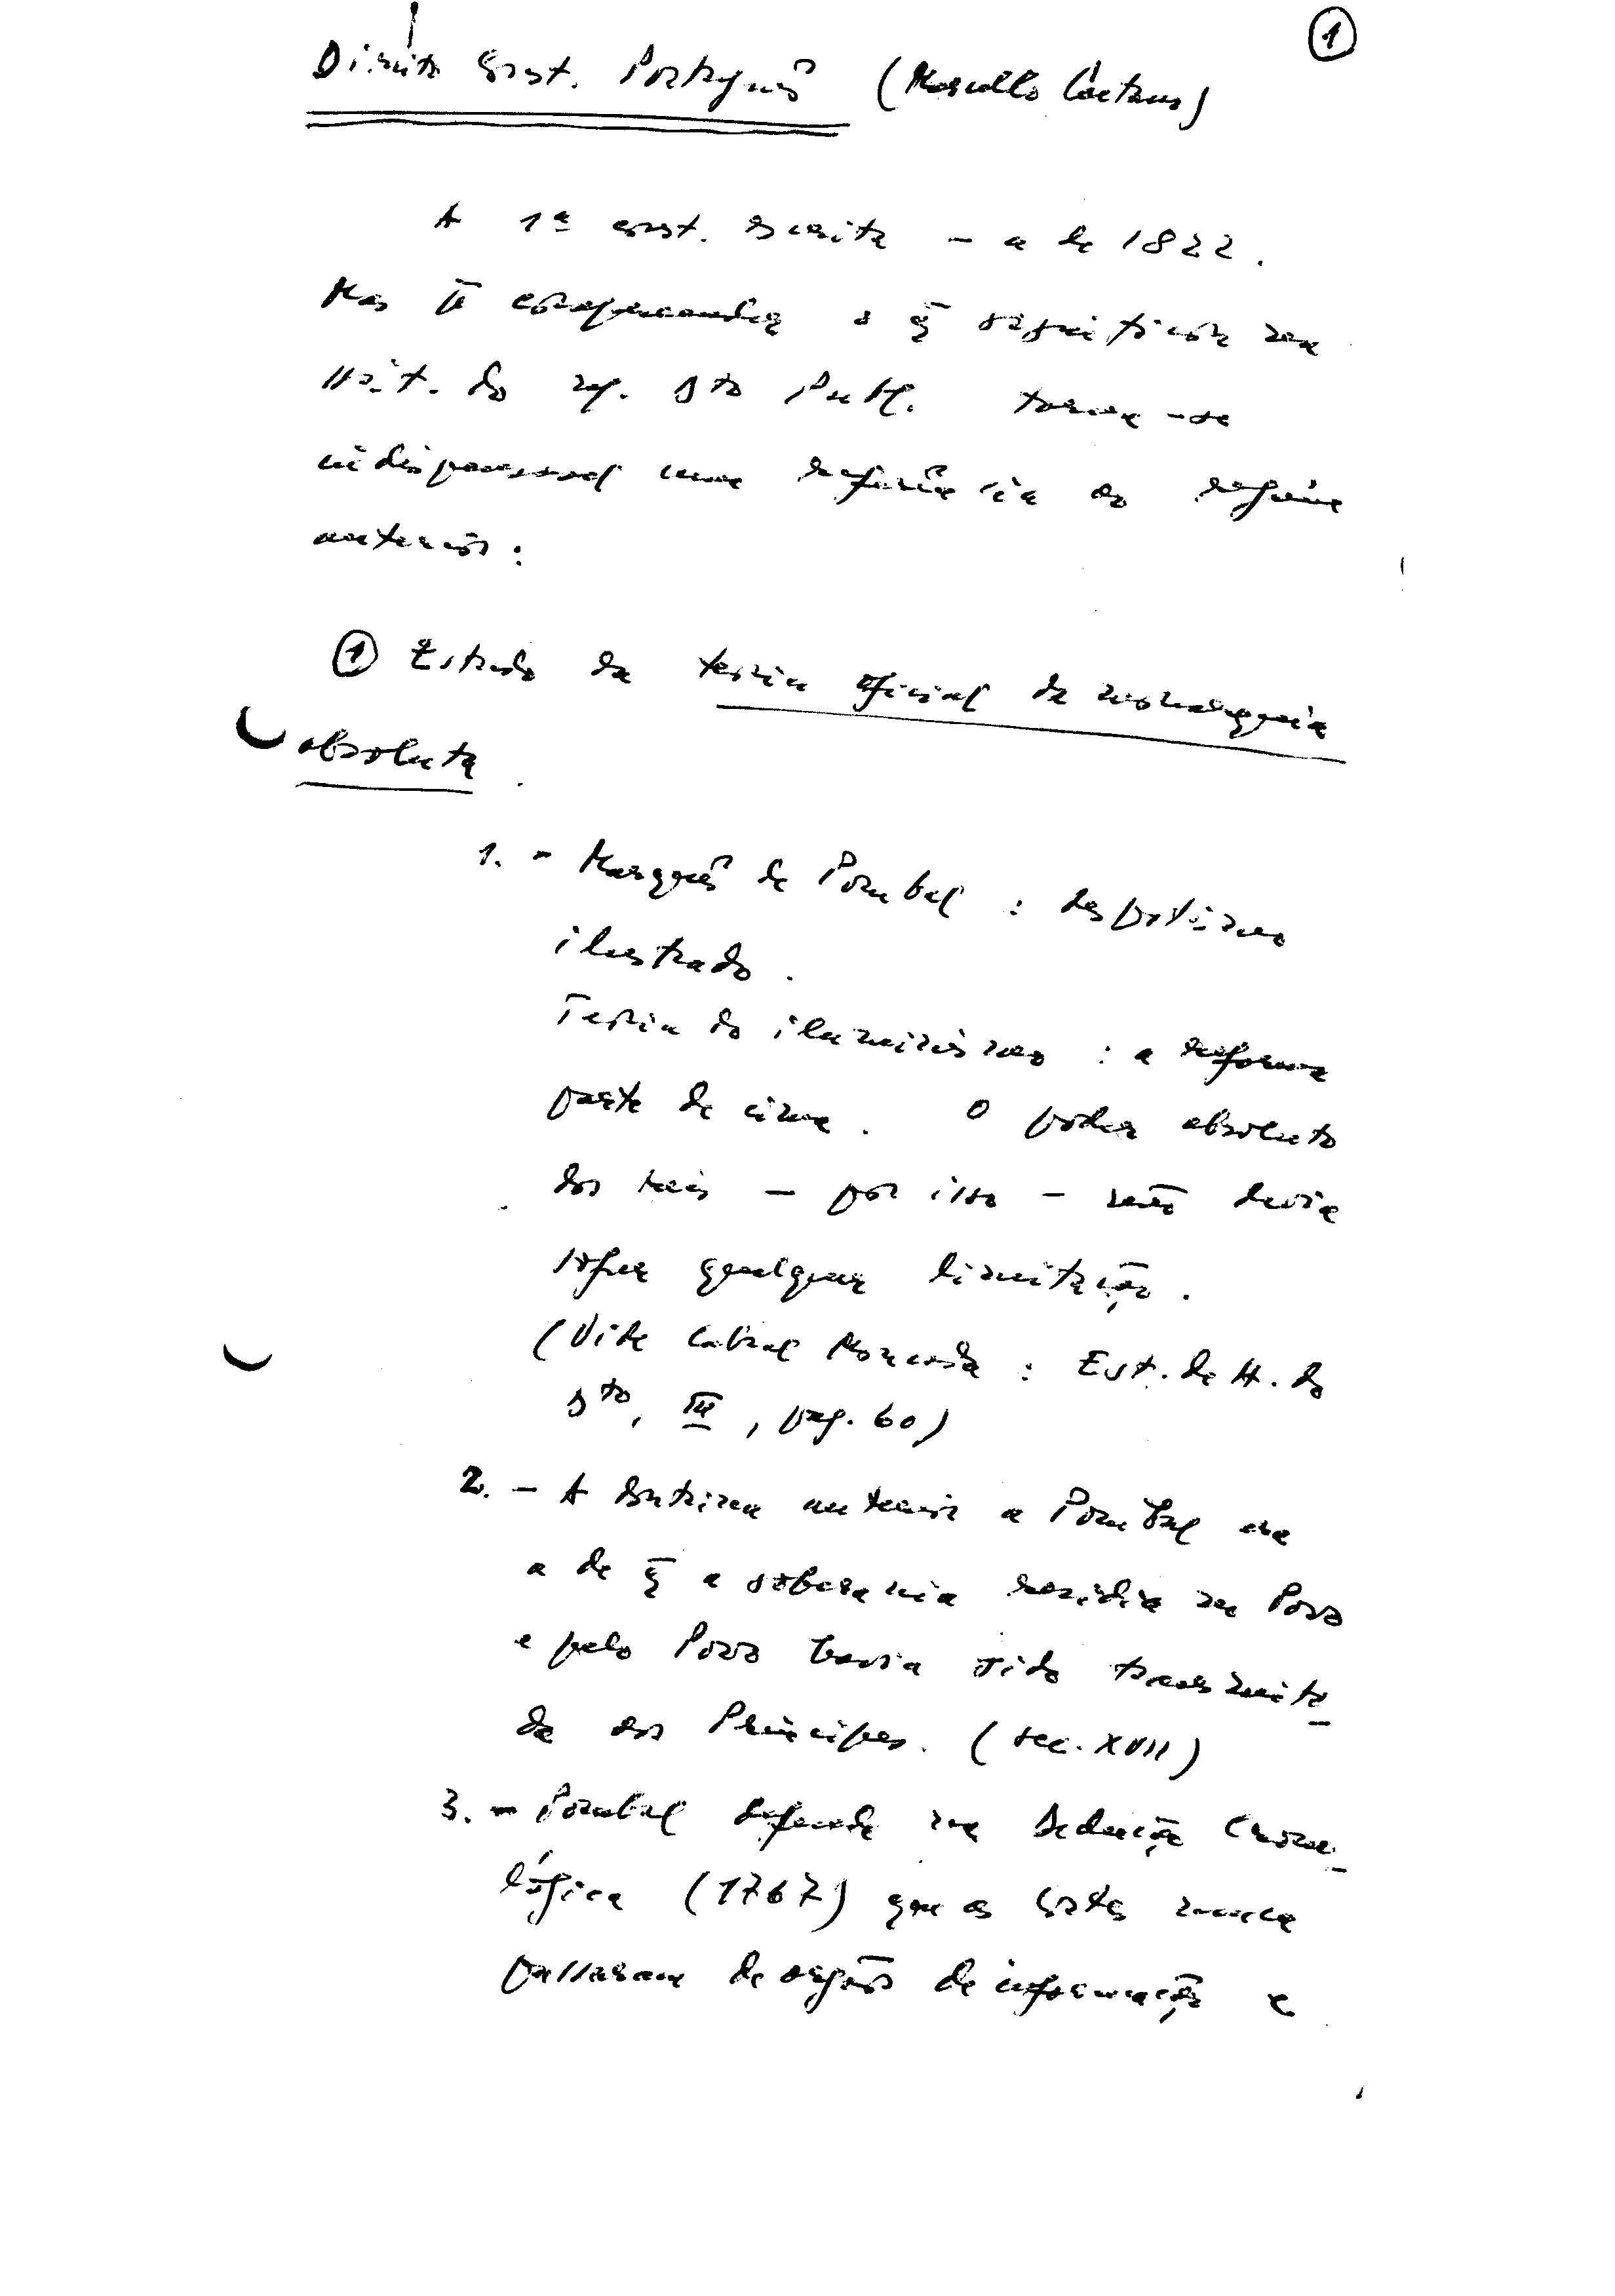 1
Direito Const. Português (Marcello Caetano)
A 1ª const. escrita - a de 1822.
Mas pª compreender o q̄ significou na
Hist. do n/. Dto Publ. torna-se
indispensável uma referência ao regime
anterior:
1 Estado da teoria oficial da monarquia
absoluta.
1. - Marquês de Pombal : despotismo
ilustrado.
Teoria do iluminismo : a reforma
parte de cima. O poder absoluto
dos reis - por isso - não devia
sofrer qualquer limitação.
(Vide Cabral Moncada : Est. de H. do
Dto, III, pag. 60)
2. - A doutrina anterior a Pombal era
a de q̄ a soberania residia no Povo
e pelo Povo havia sido transmiti-
da aos Príncipes. (sec. XVII)
3. - Pombal defende na Dedução Crono-
lógica (1767) que as Cortes nunca
passaram de orgãos de informação e